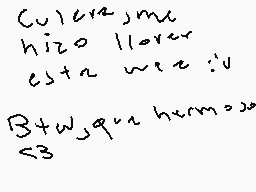 Culera, me
hizo llorar
esta wea :'v
Btw, que hermoso
<3